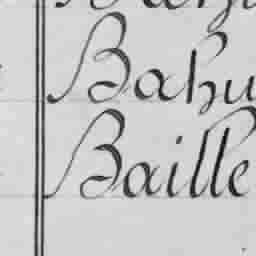 Bahu
Baille